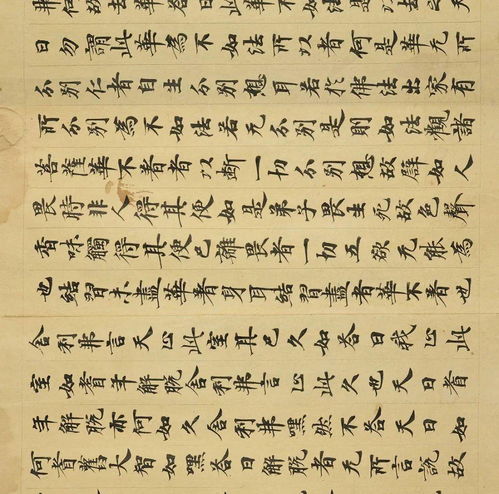 故去華答曰此華不如法是以去天
曰勿謂此華為不如法所以者何是華无所
分別仁者自生分別想耳若於佛法出家有
所分別為不如法若无分別是則如法觀諸
菩薩華不著者以斷一切分別想故譬如人
畏時非人得其便如是弟子畏生死故色聲
香味觸得其便已離畏者一切五欲无能為
也結習未盡華著身耳結習盡者華不著也
舍利弗言天止此室其已久如答曰我止此
室如耆年解脫舍利弗言止此久也天曰耆
年解脫亦何如久舍利弗嘿然不答天曰如
何耆舊大智如嘿答曰解脫者无所言說故